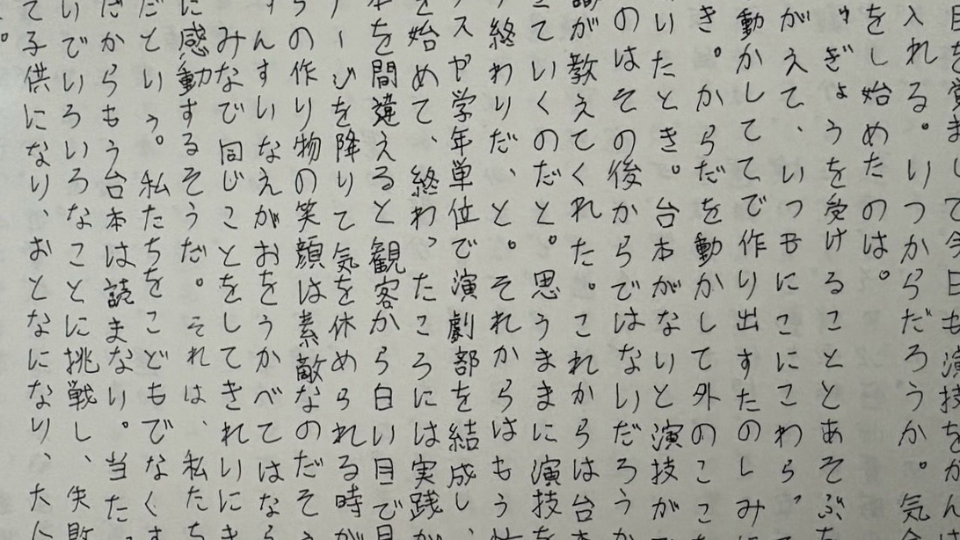 目を覚まして今日も演技をがんば
入れる。いつからだろうか。気
をし始めたのは。
ぎょうを受けることとあそぶち
がえて、いつもにこにこわらって
動かしててで作り出すたのしみ
き。からだを動かして外のここ
いたとき。台本がないと演技が
のはその後からではないだろうか
が教えてくれた。これからは台本
ていくのだと。思うままに演技を
終わりだ、と。それからはもう
スや学年単位で演劇部を結成し、
を始めて、終わったころには実践が
本を間違えると観客から白い目で見
ージを降りて気を休められる時が
らの作り物の笑顔は素敵なのだそう
んすいなえがおをうかべてはなら
みなで同じことをしてきれいにき
に感動するそうだ。それは、私たち
だという。私たちをこどもでなくす
だからもう台本は読まない。当た
いでいろいろなことに挑戦し、失敗
て子供になり、おとなになり、大人
。